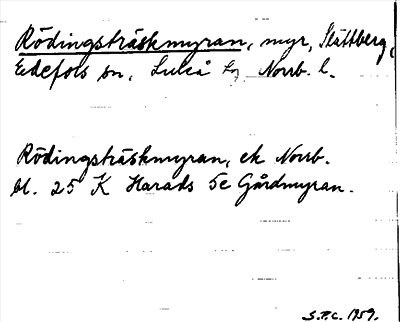 Rödingsträskmyran, myr, Slättberg,
Edefors sn, Luleå lg Norrb. l.
Rödingsträskmyran, ek Norrb.
bl. 25 K Harads 5e Gårdmyran.
S.P.C. 1959.